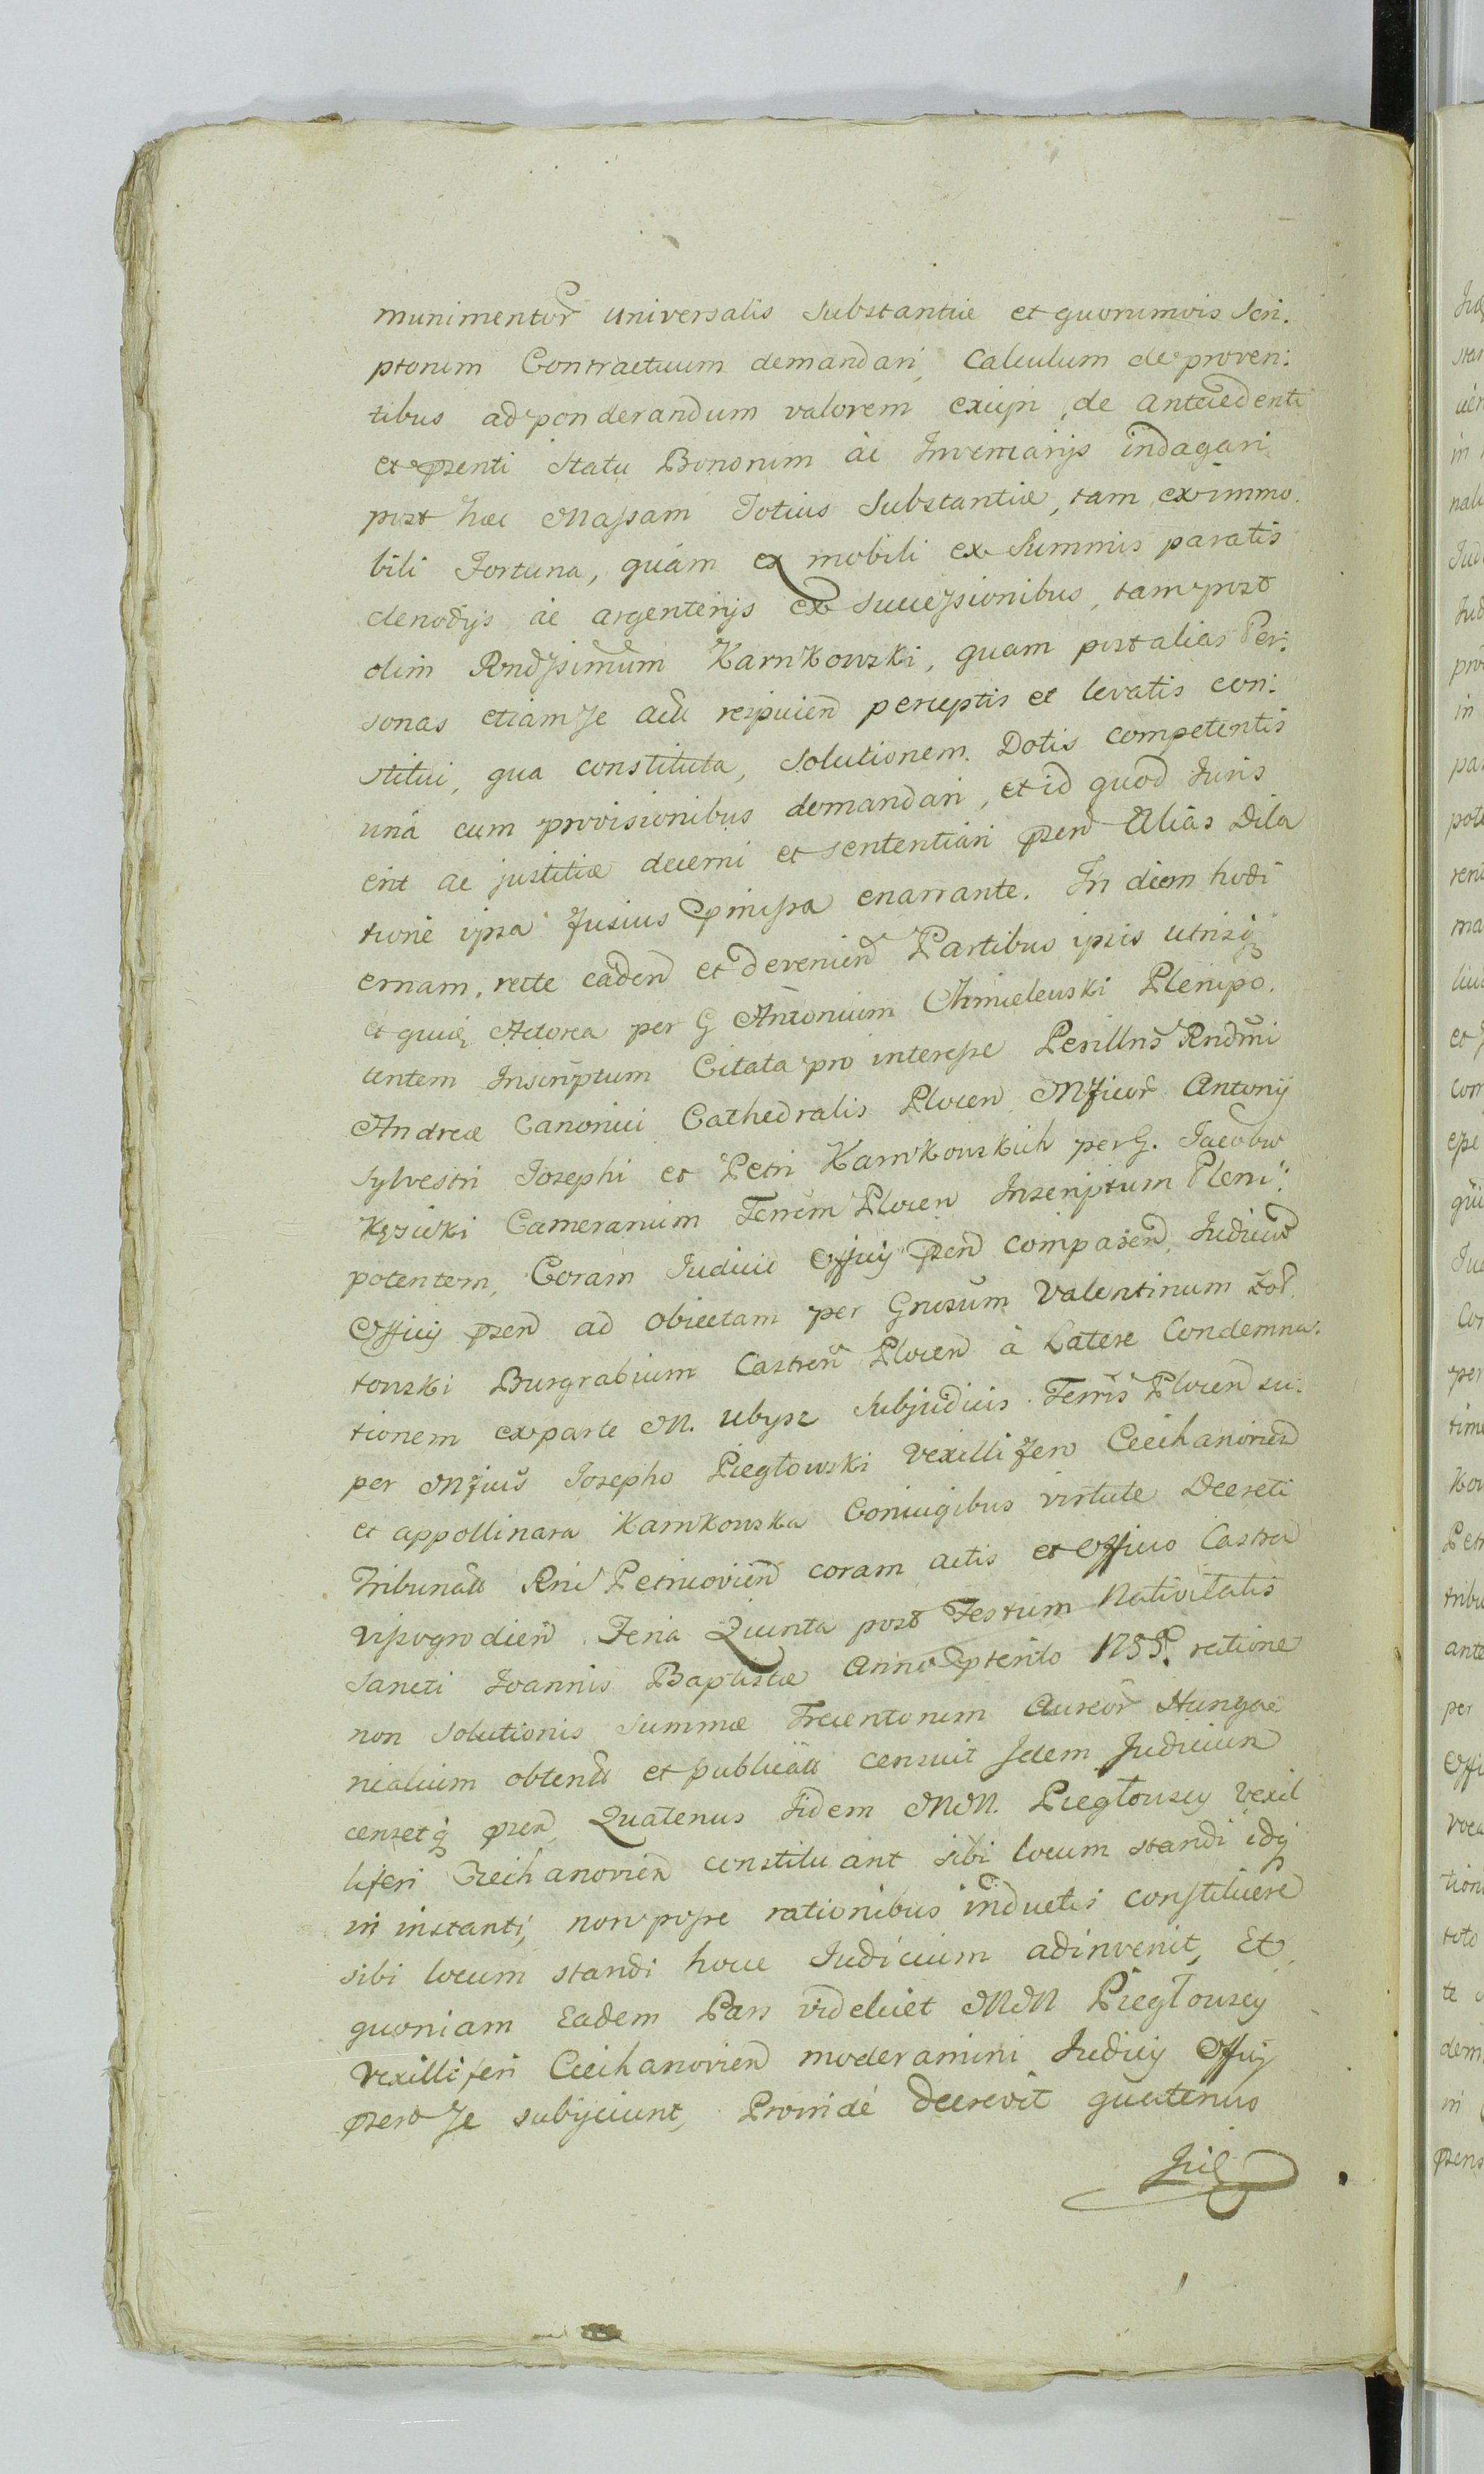 munimentor universalis Substantiæ et quorumvis Scri:
ptorum Contractuum demandari, Calculum de proven:
tibus ad ponderandum valorem excipi, de antecedenti
et pzenti Statu Bonorum ac Inventarijs indagari
post hæc Massam Totius Substantiæ, tam ex immo.
bili Fortuna, quàm ex mobili ex Summis paratis
clenodijs ac argenterijs ex Successionibus, tam post
olim Rndssimum Karnkowski, quam post alias Per:
sonas etiam se ad respicien perceptis et levatis con:
stitui, qua constituta, Solutionem Dotis competentis
unà cum provisionibus demandari, et id quod Iuris
erit ac justitiæ decerni et sententiari pzen Aliàs Dila
tione ipsa fusius pmissa enarrante. In diem hodi
ernam, recte caden et devenien Partibus ipsis utrisq
et quidē Actorea per G Antonium Chmielewski Plenipo.
tentem Inscriptum Citata pro interesse Perillris Rndmi
Andreæ Canonici Cathedralis Plocen Mficor Antonij
Sylvestri Josephi et Petri Karnkowskich per G. Jacobum
Kęsicki Camerarium Terrēm Plocen Inscriptum Pleni:
potentem, Coram Iudicio Officij pzen comparen, Iudicium
Officij pzen ad obiectam per Grosum Valentinum Zoł.
towski Burgrabium Castren Plocen à Latere Condemna:
tionem ex parte M. Ubysz Subjudicis Terris Plocen su:
per Mficis Josepho Piegłowski Vexillifero Ciechanovien
et appollinara Karnkowska Coniugibus virtute Decreti
Tribunalis Rni Petricovien coram actis et Officio Castren
Vissogrodien Feria Quinta post Festum Nativitatis
Sancti Ioannis Baptistæ Anno pterito 1755. ratione
non Solutionis summæ Trecentorum Aureor Hunga
ricalium obtent et publicat censuit Idem Iudicium
censetq pzen Quatenus Iidem MM. Piegłowscy Vexil
liferi Ciechanovien constituant sibi locum standi idq
in instanti, non posse rationibus inductis constituere
sibi locum standi hocce Iudicium adinvenit, Et
quoniam Eadem Pars videlicet MM Piegłowscy
Vexilliferi Ciechanovien moderamini Iudicij Officij
pzen se subijciunt, Proindè Decrevit quatenus